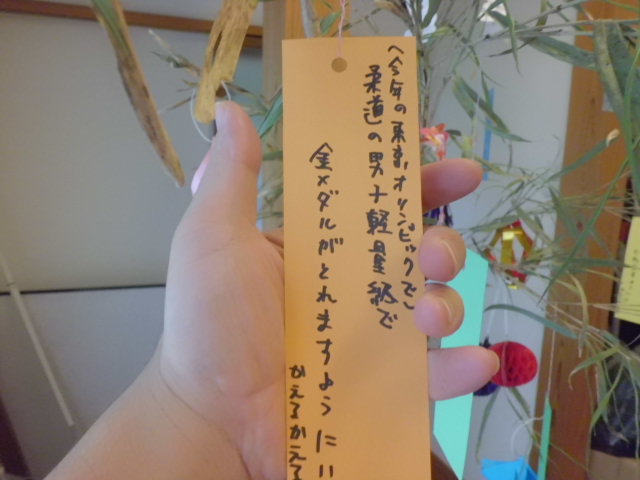 (今年の東京オリンピックで)
柔道の男子軽量級で
金メダルがとれますようにい
かえるかえる